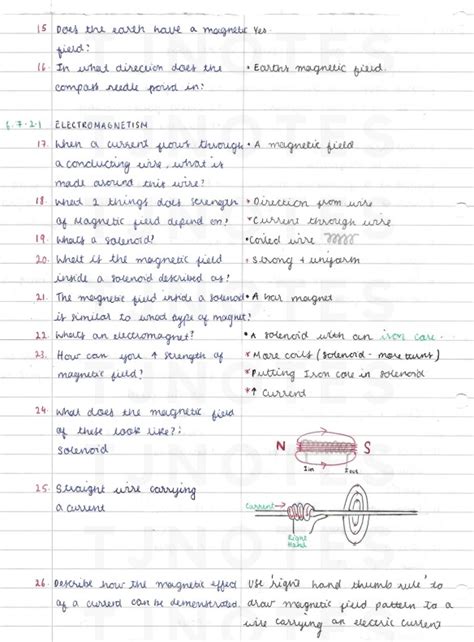 15 Does the earth have a magnetic Yes.
field?
16. In what direction does the • Earths magnetic field.
compass needle point in?
6.7.2.1 ELECTROMAGNETISM
17. When a current flows through • A magnetic field
a conducting wire, what is
made around this wire?
18. What 2 things does strength • Direction from wire
of Magnetic field depend on? • Current through wire
19. What's a solenoid? • Coiled wire
20. What is the magnetic field • strong + uniform
inside a solenoid described as?
21. The magnetic field inside a solenoid • A bar magnet
is similar to what type of magnet?
22. What's an electromagnet? • A solenoid with an iron core.
23. How can you ↑ strength of * More coils (solenoid - more turns)
magnetic field? * Putting Iron core in solenoid
* ↑ Current
24. What does the magnetic field
of these look like?:
solenoid
N S
I in I out
25. Straight wire carrying
a current
Current →
Right
Hand
26. Describe how the magnetic effect Use 'right hand thumb rule' to
of a current can be demonstrated. draw magnetic field pattern to a
wire carrying an electric current
TJNOTES